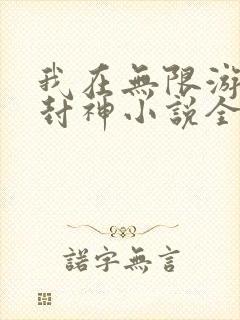 我在無限游
封神小説全
諾字無言